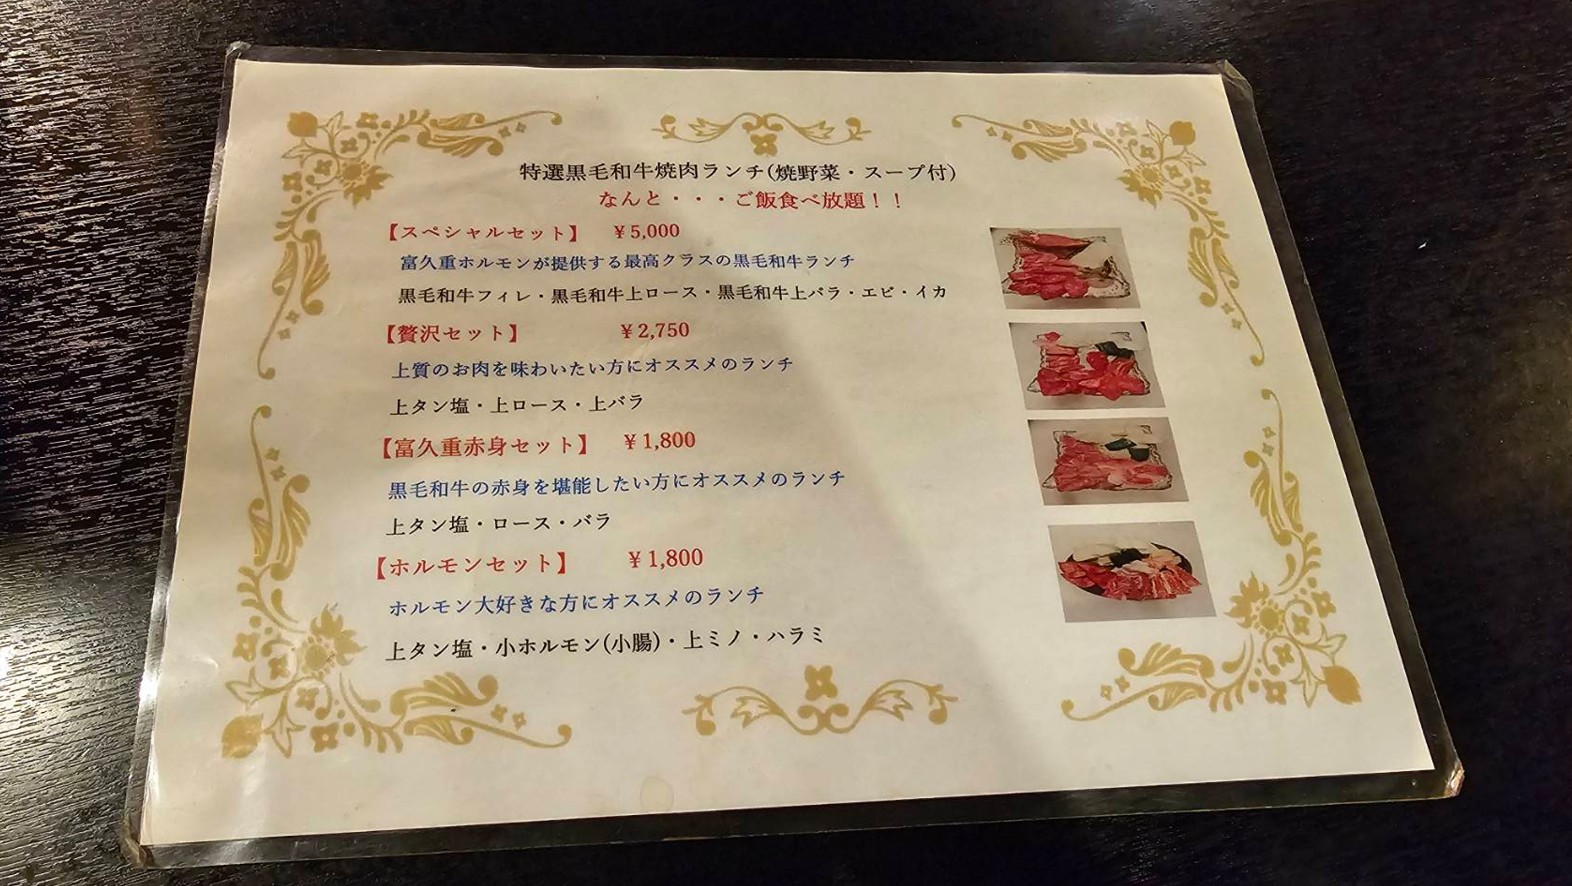 特選黒毛和牛焼肉ランチ(焼野菜・スープ付)
なんと・・・ご飯食べ放題！！
【スペシャルセット】 ￥5,000
富久重ホルモンが提供する最高クラスの黒毛和牛ランチ
黒毛和牛フィレ・黒毛和牛上ロース・黒毛和牛上バラ・エビ・イカ
【贅沢セット】 ￥2,750
上質のお肉を味わいたい方にオススメのランチ
上タン塩・上ロース・上バラ
【富久重赤身セット】 ￥1,800
黒毛和牛の赤身を堪能したい方にオススメのランチ
上タン塩・ロース・バラ
【ホルモンセット】 ￥1,800
ホルモン大好きな方にオススメのランチ
上タン塩・小ホルモン(小腸)・上ミノ・ハラミ